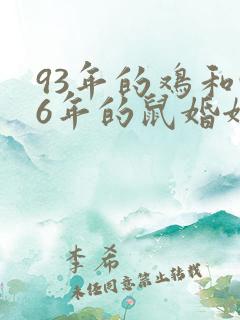 93年的鸡和
6年的鼠婚
李希
未经同意禁止转载